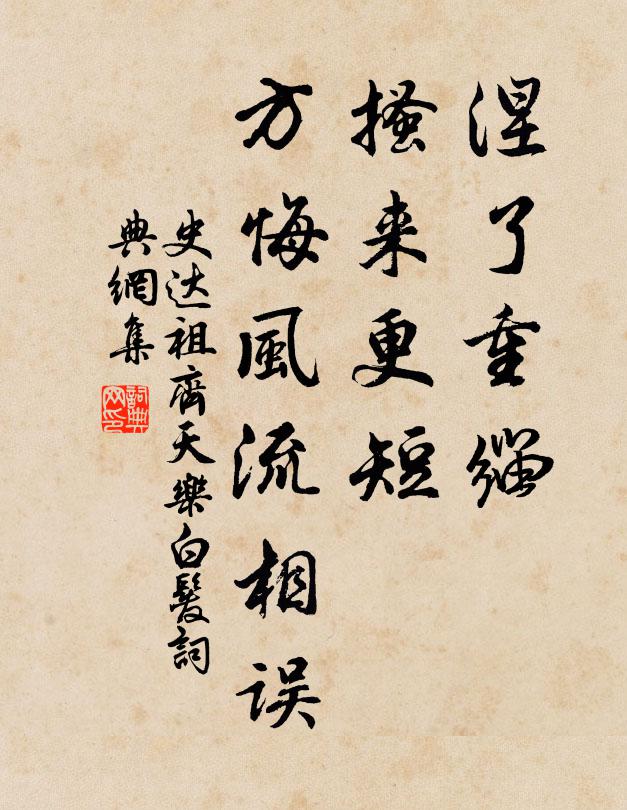 涅了重緇
搔来更短
方悔風流相误
史达祖齊天樂白髮詞
典網集
詞典网印